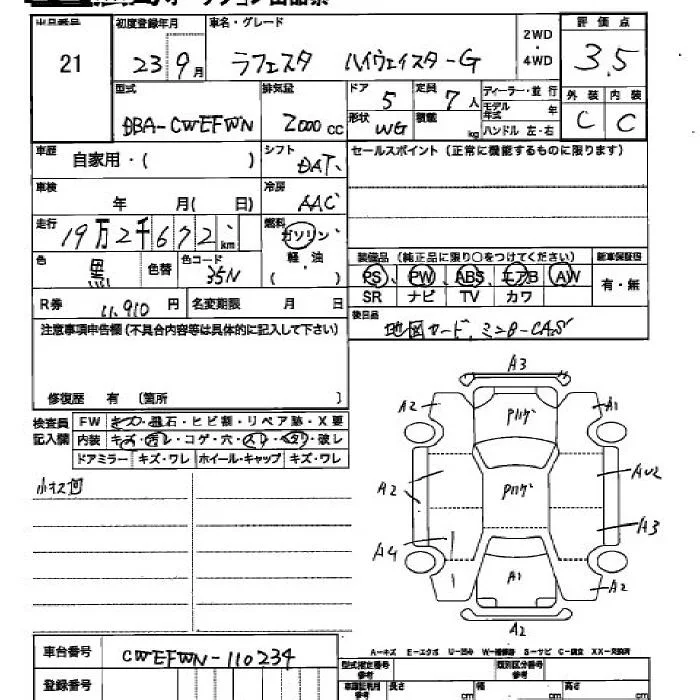 オークション出品票
出品番号 初度登録年月 車名・グレード 2WD・4WD 評価点
21 23 9月 ラフェスタ ハイウェイスター-G 3.5
型式 排気量 ドア 5 定員 7人 ディーラー・並行 外装 内装
DBA-CWEFWN 2000cc 形状 WG 積載 kg モデル年式 年 C C
ハンドル 左・右
車歴 自家用・( ) シフト DAT セールスポイント (正常に機能するものに限ります)
車検 年 月( 日) 冷房 AAC
走行 19万2千672km 燃料 ガソリン 軽・油 ( )
色 黒 色替 色コード 35N
装備品 (純正品に限り○をつけてください) 新車保証書
PS PW ABS エアB AW 有・無
SR ナビ TV カワ
R券 11,910円 名変期限 月 日
後日品
地図カード、ミニB-CAS
注意事項申告欄 (不具合内容等は具体的に記入して下さい)
修復歴 有 〔箇所 〕
検査員記入欄 FW キズ・飛石・ヒビ割・リペア跡・X要
内装 キズ・汚レ・コゲ・穴・スレ・ヘタリ・破レ
ドアミラー キズ・ワレ ホイール・キャップ キズ・ワレ
小キズ凹
A3
A2 Pハゲ A1
A2 Pハゲ AU2
A4 A3
A1 A2
A2
A-キズ E-エクボ U-凹み W-補修跡 S-サビ C-腐食 XX-交換済
車台番号 CWEFWN-110234
登録番号
型式指定番号 参考 類別区分番号 参考
車検証利用 参考 長さ cm 幅 cm 高さ cm